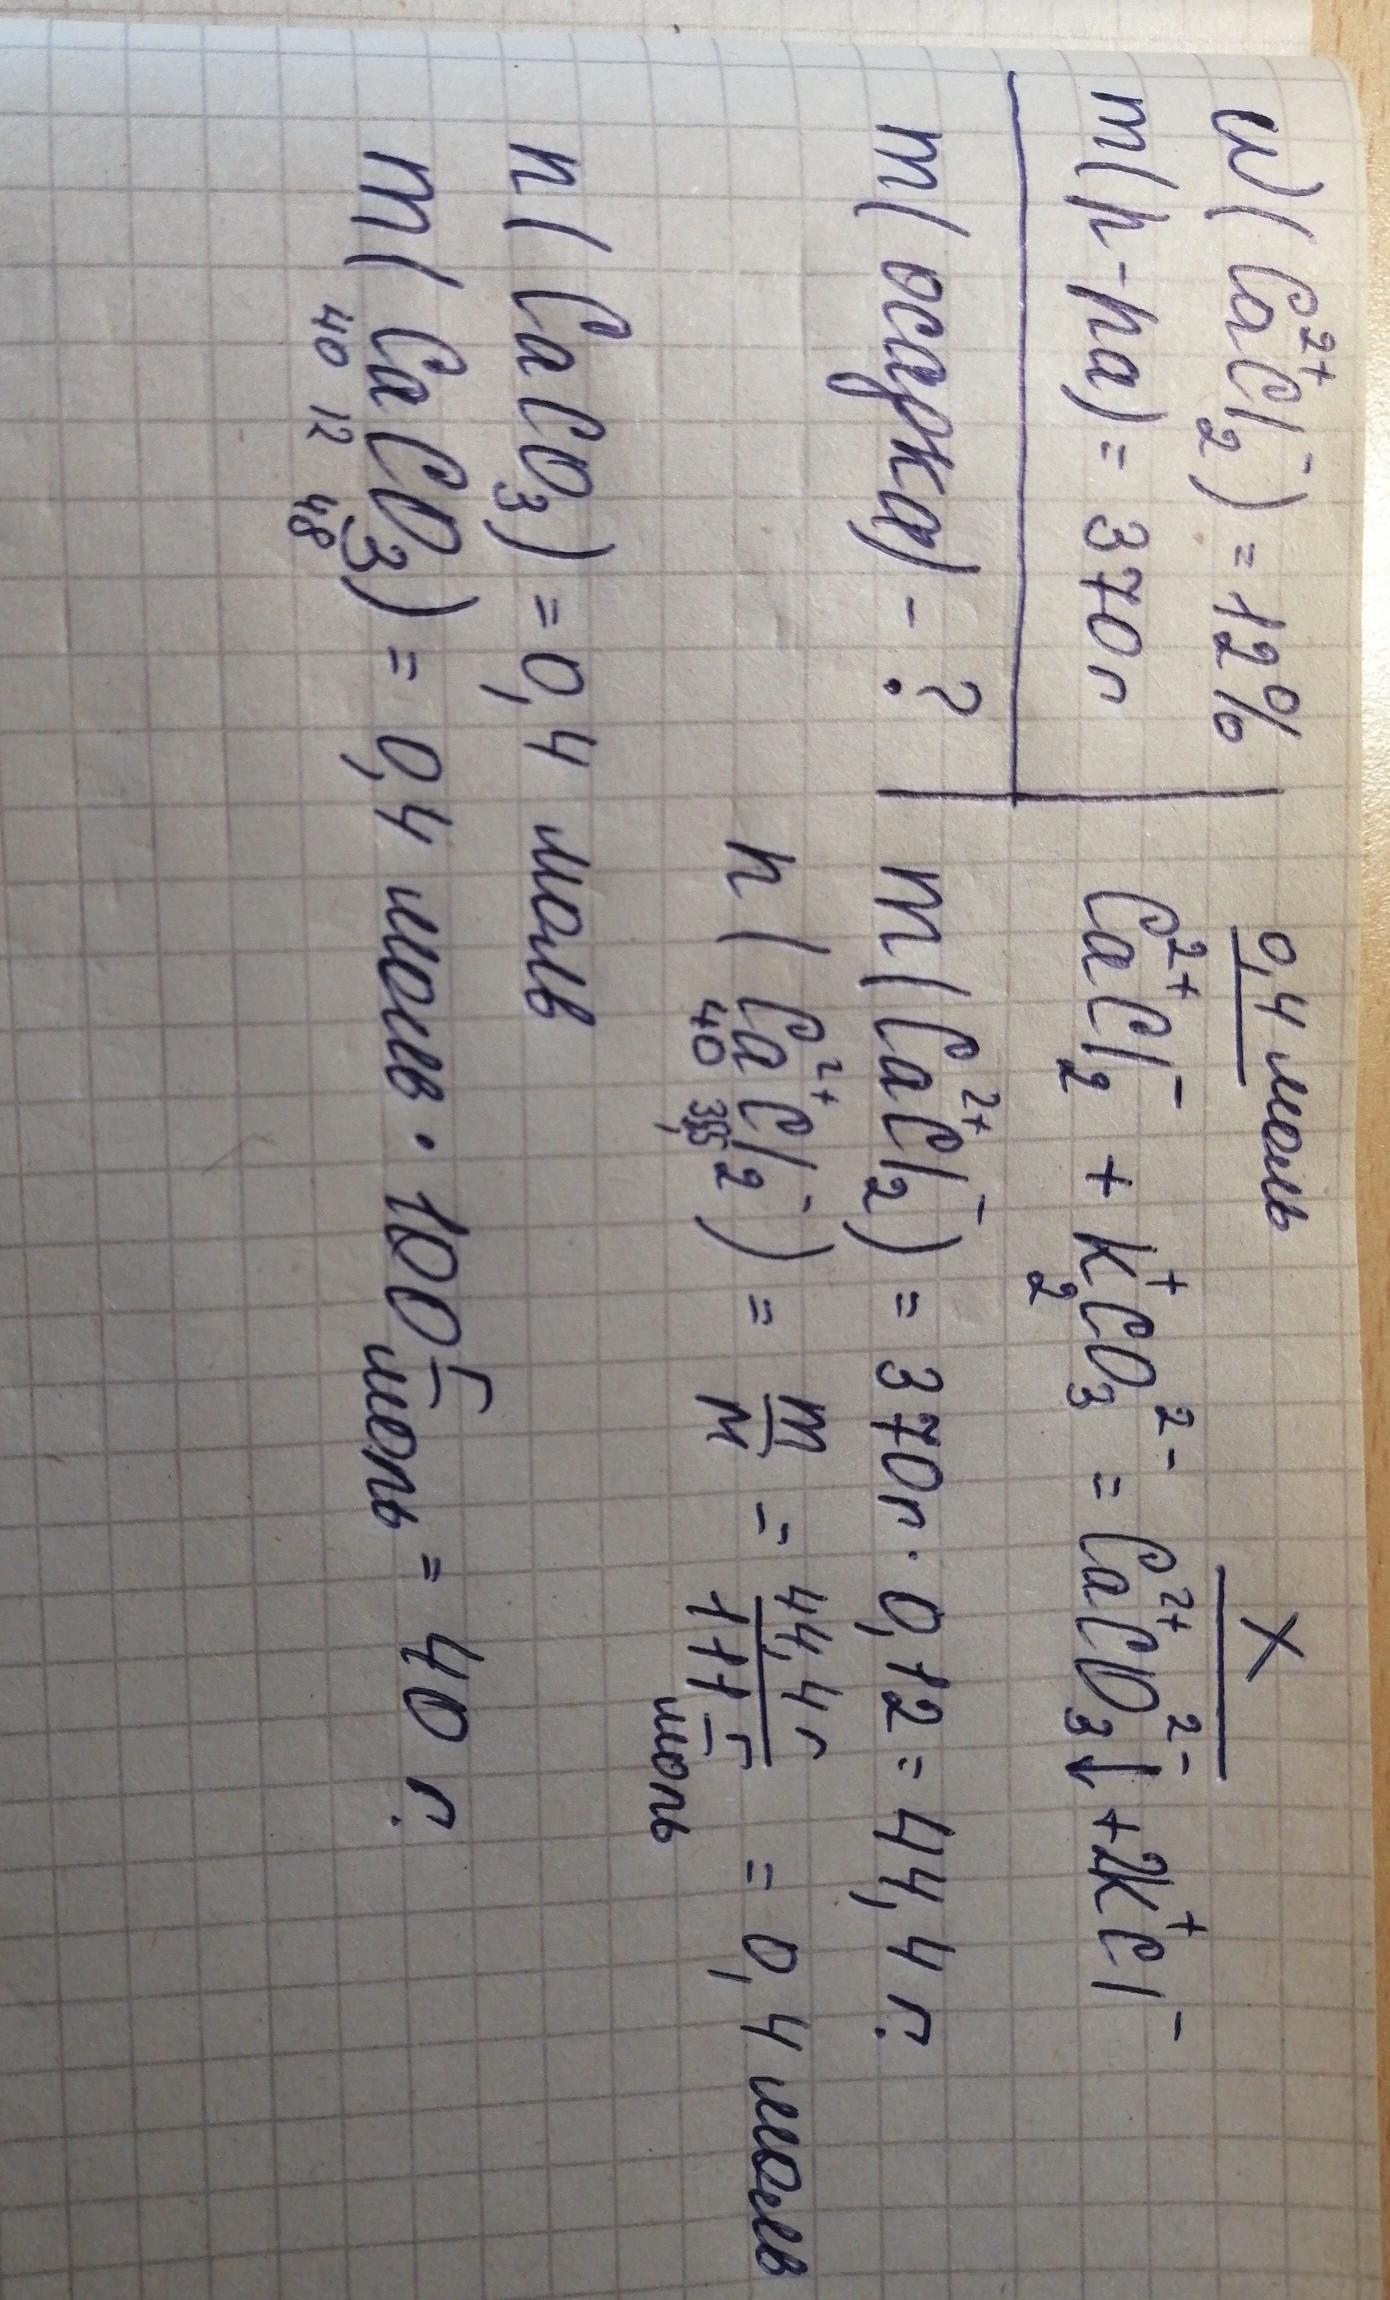 ω(Ca²⁺Cl₂⁻) = 12%
m(р-ра) = 370г
m(осадка) - ?
0,4 моль X
Ca²⁺Cl₂⁻ + K₂⁺CO₃²⁻ = Ca²⁺CO₃²⁻↓ + 2K⁺Cl⁻
m(Ca²⁺Cl₂⁻) = 370г · 0,12 = 44,4 г.
n(Ca²⁺Cl₂⁻) = m/M = 44,4г / 111 г/моль = 0,4 моль
40 35,5
n(CaCO₃) = 0,4 моль
m(CaCO₃) = 0,4 моль · 100 г/моль = 40 г.
40 12 48